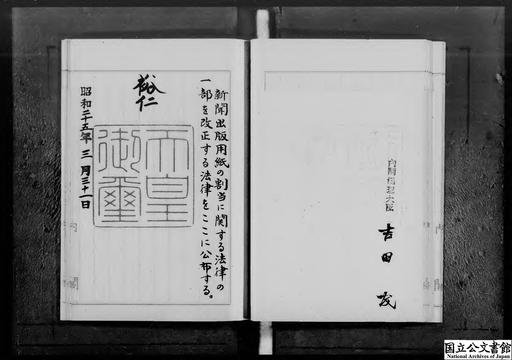 新聞出版用紙の割当に関する法律の
一部を改正する法律をここに公布する。
裕仁
天皇
御璽
昭和二十五年三月三十一日
内閣総理大臣
吉田茂
国立公文書館
National Archives of Japan